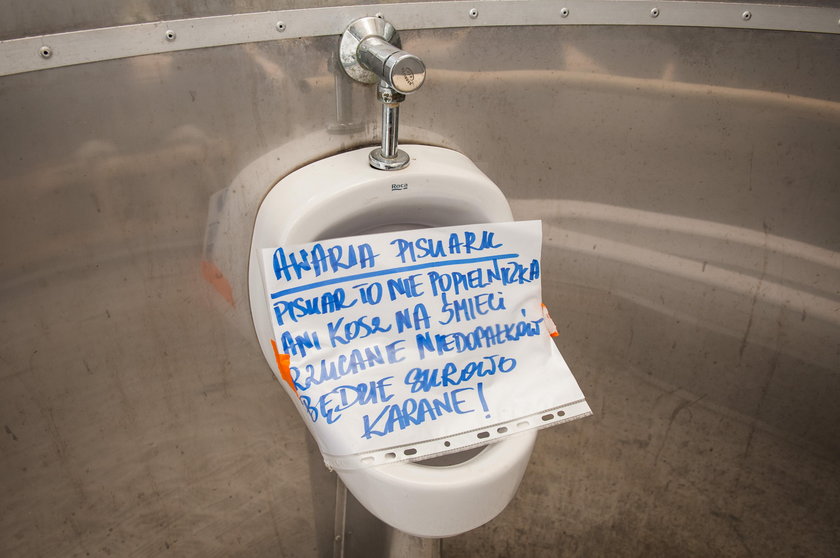 Roca
AWARIA PISUARU
PISUAR TO NIE POPIELNICZKA
ANI KOSZ NA ŚMIECI
RZUCANIE NIEDOPAŁKÓW
BĘDZIE SUROWO
KARANE!